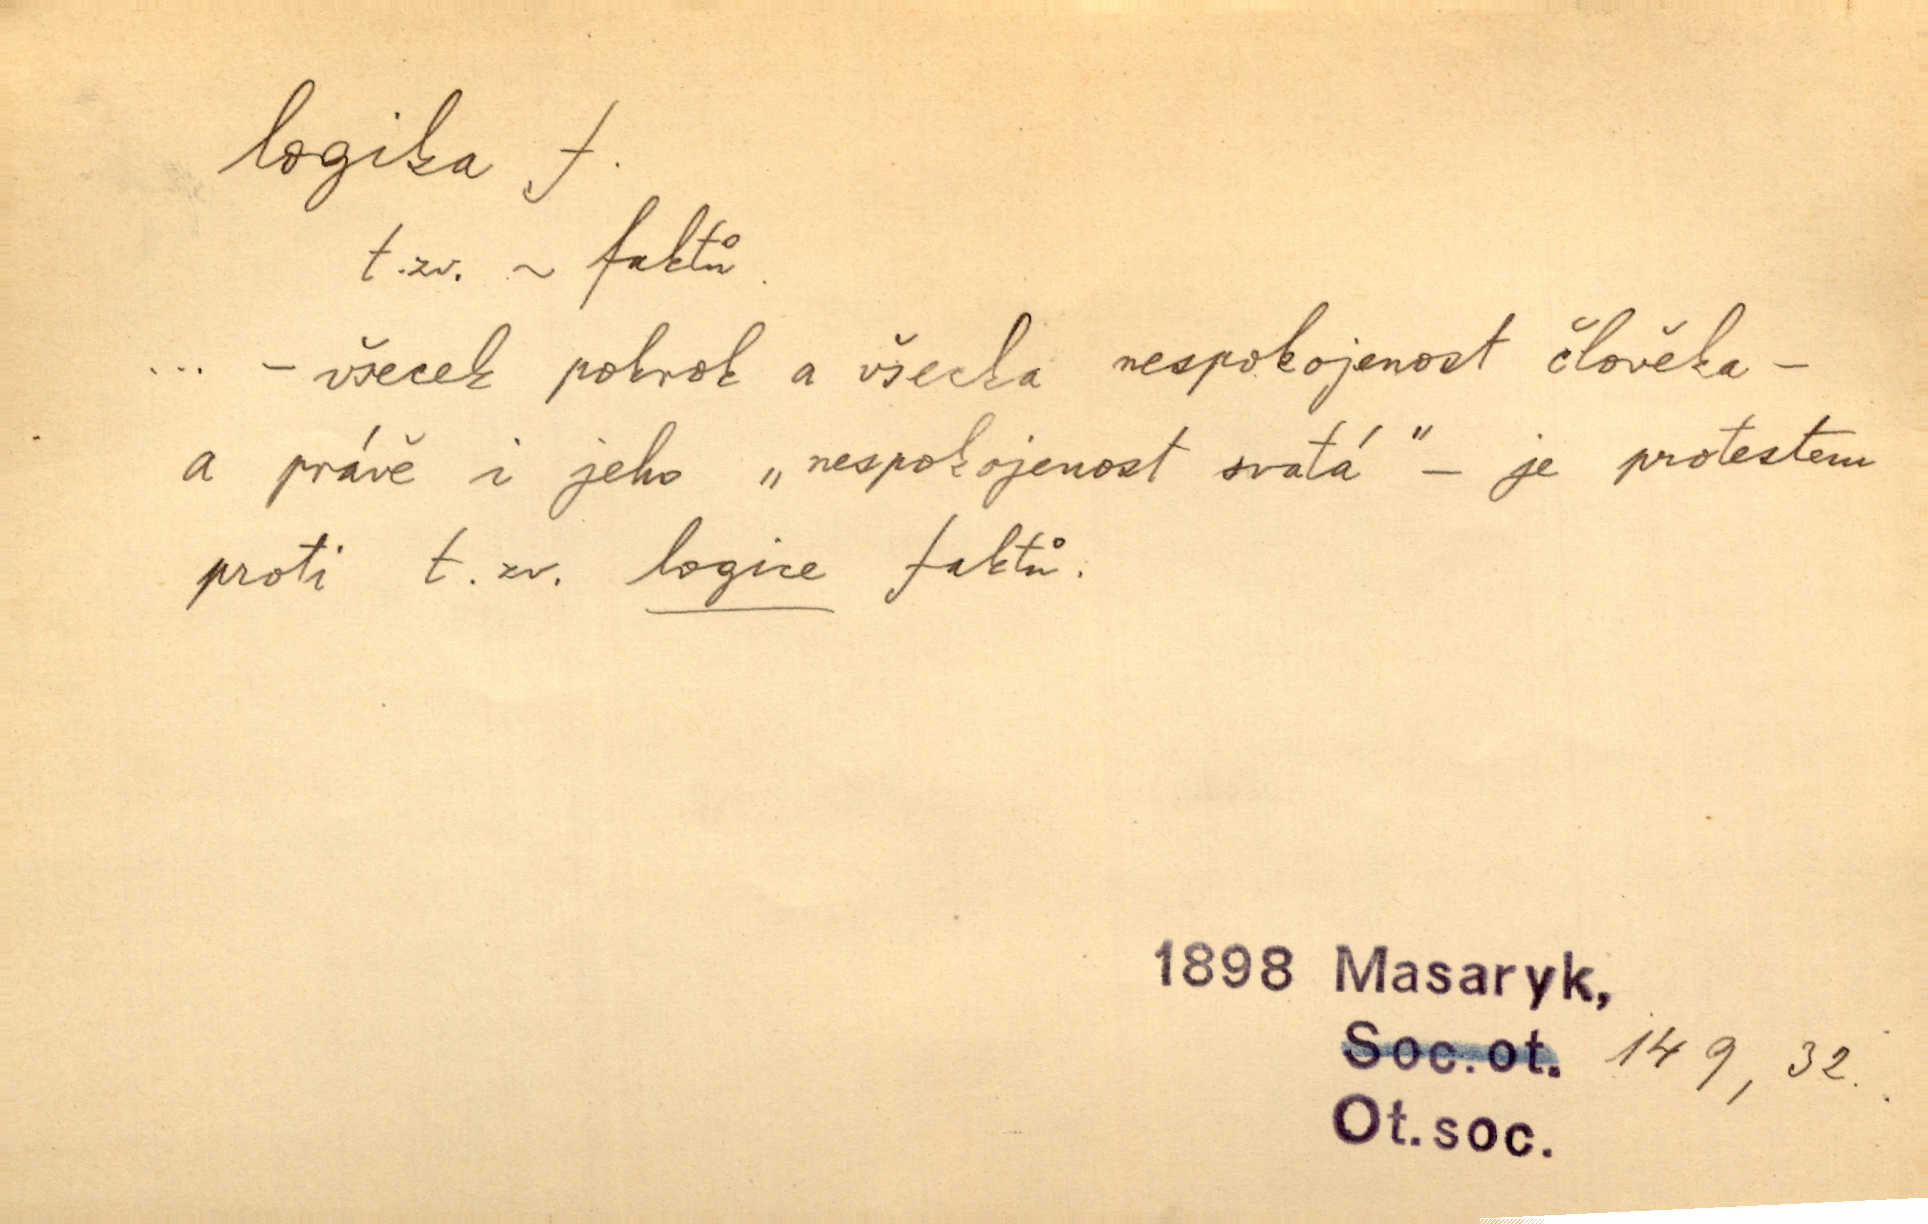 logika f.
t.zv. ~ faktů
... – všecek pokrok a všecka nespokojenost člověka –
a právě i jeho „nespokojenost svatá“ – je protestem
proti t.zv. logice faktů.
1898 Masaryk,
Soc.ot. 149, 32.
Ot.soc.